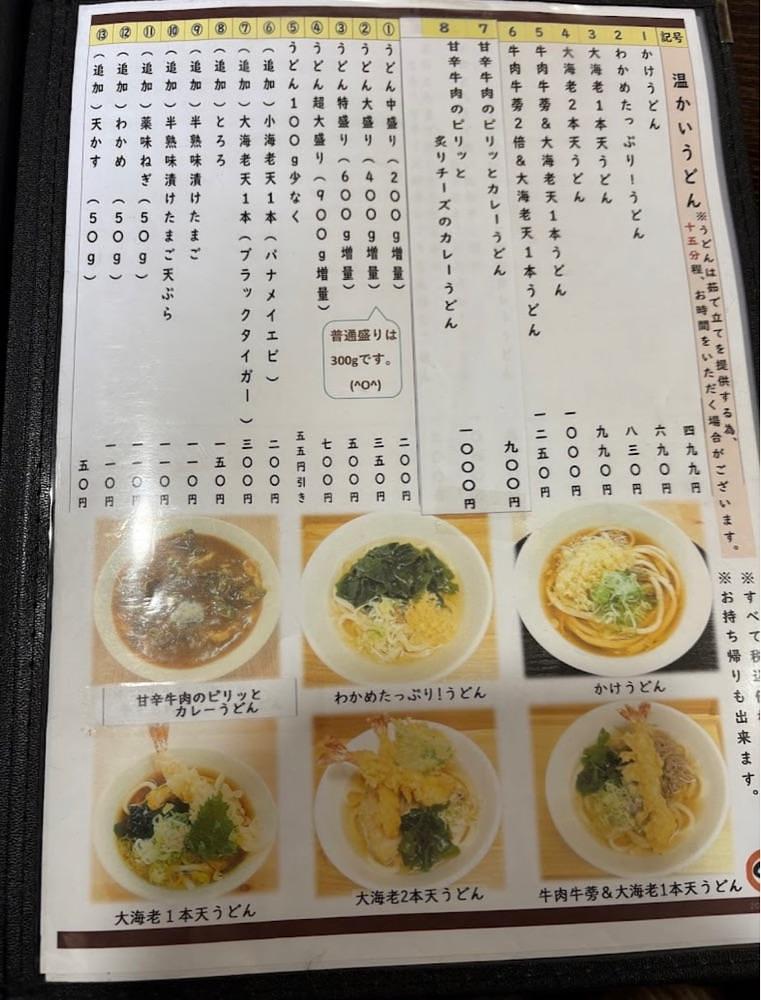 ※すべて税込
※お持ち帰りも出来ます。
記号 温かいうどん
※うどんは茹で立てを提供する為、
十五分程、お時間をいただく場合がございます。
1 かけうどん 四九九円
2 わかめたっぷり!うどん 六九〇円
3 大海老1本天うどん 八三〇円
4 大海老2本天うどん 九九〇円
5 牛肉牛蒡&大海老天1本うどん 一〇〇〇円
6 牛肉牛蒡2倍&大海老天1本うどん 一二五〇円
7 甘辛牛肉のピリッとカレーうどん 九〇〇円
8 甘辛牛肉のピリッと
炙りチーズのカレーうどん 一〇〇〇円
① うどん中盛り(200g増量) 二〇〇円
② うどん大盛り(400g増量) 三五〇円
③ うどん特盛り(600g増量) 五〇〇円
④ うどん超大盛り(900g増量) 七〇〇円
普通盛りは
300gです。
(^O^)
⑤ うどん100g少なく 五五円引き
⑥ (追加)小海老天1本(バナメイエビ) 二〇〇円
⑦ (追加)大海老天1本(ブラックタイガー) 三〇〇円
⑧ (追加)とろろ 一五〇円
⑨ (追加)半熟味漬けたまご 一一〇円
⑩ (追加)半熟味漬けたまご天ぷら 一一〇円
⑪ (追加)薬味ねぎ(50g) 一一〇円
⑫ (追加)わかめ(50g) 一一〇円
⑬ (追加)天かす(50g) 五〇円
かけうどん
わかめたっぷり!うどん
甘辛牛肉のピリッと
カレーうどん
牛肉牛蒡&大海老1本天うどん
大海老2本天うどん
大海老1本天うどん